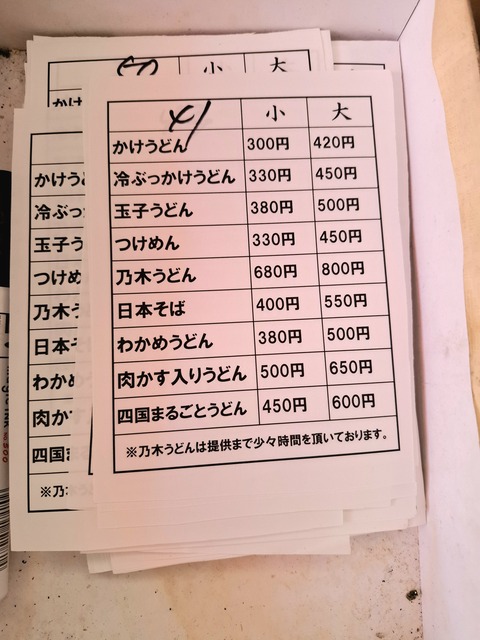 小 大
かけうどん 300円 420円
冷ぶっかけうどん 330円 450円
玉子うどん 380円 500円
つけめん 330円 450円
乃木うどん 680円 800円
日本そば 400円 550円
わかめうどん 380円 500円
肉かす入りうどん 500円 650円
四国まるごとうどん 450円 600円
※乃木うどんは提供まで少々時間を頂いております。
小 大
かけ
かけう
冷ぶっ
玉子う
つけめ
乃木う
日本そ
わかめ
肉か
四国
※乃